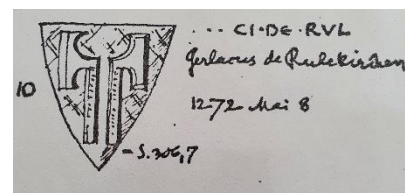 ... CI·DE·RVL
Gerlacus de Rulekirchen
10
1272 Mai 8
- S. 306,7